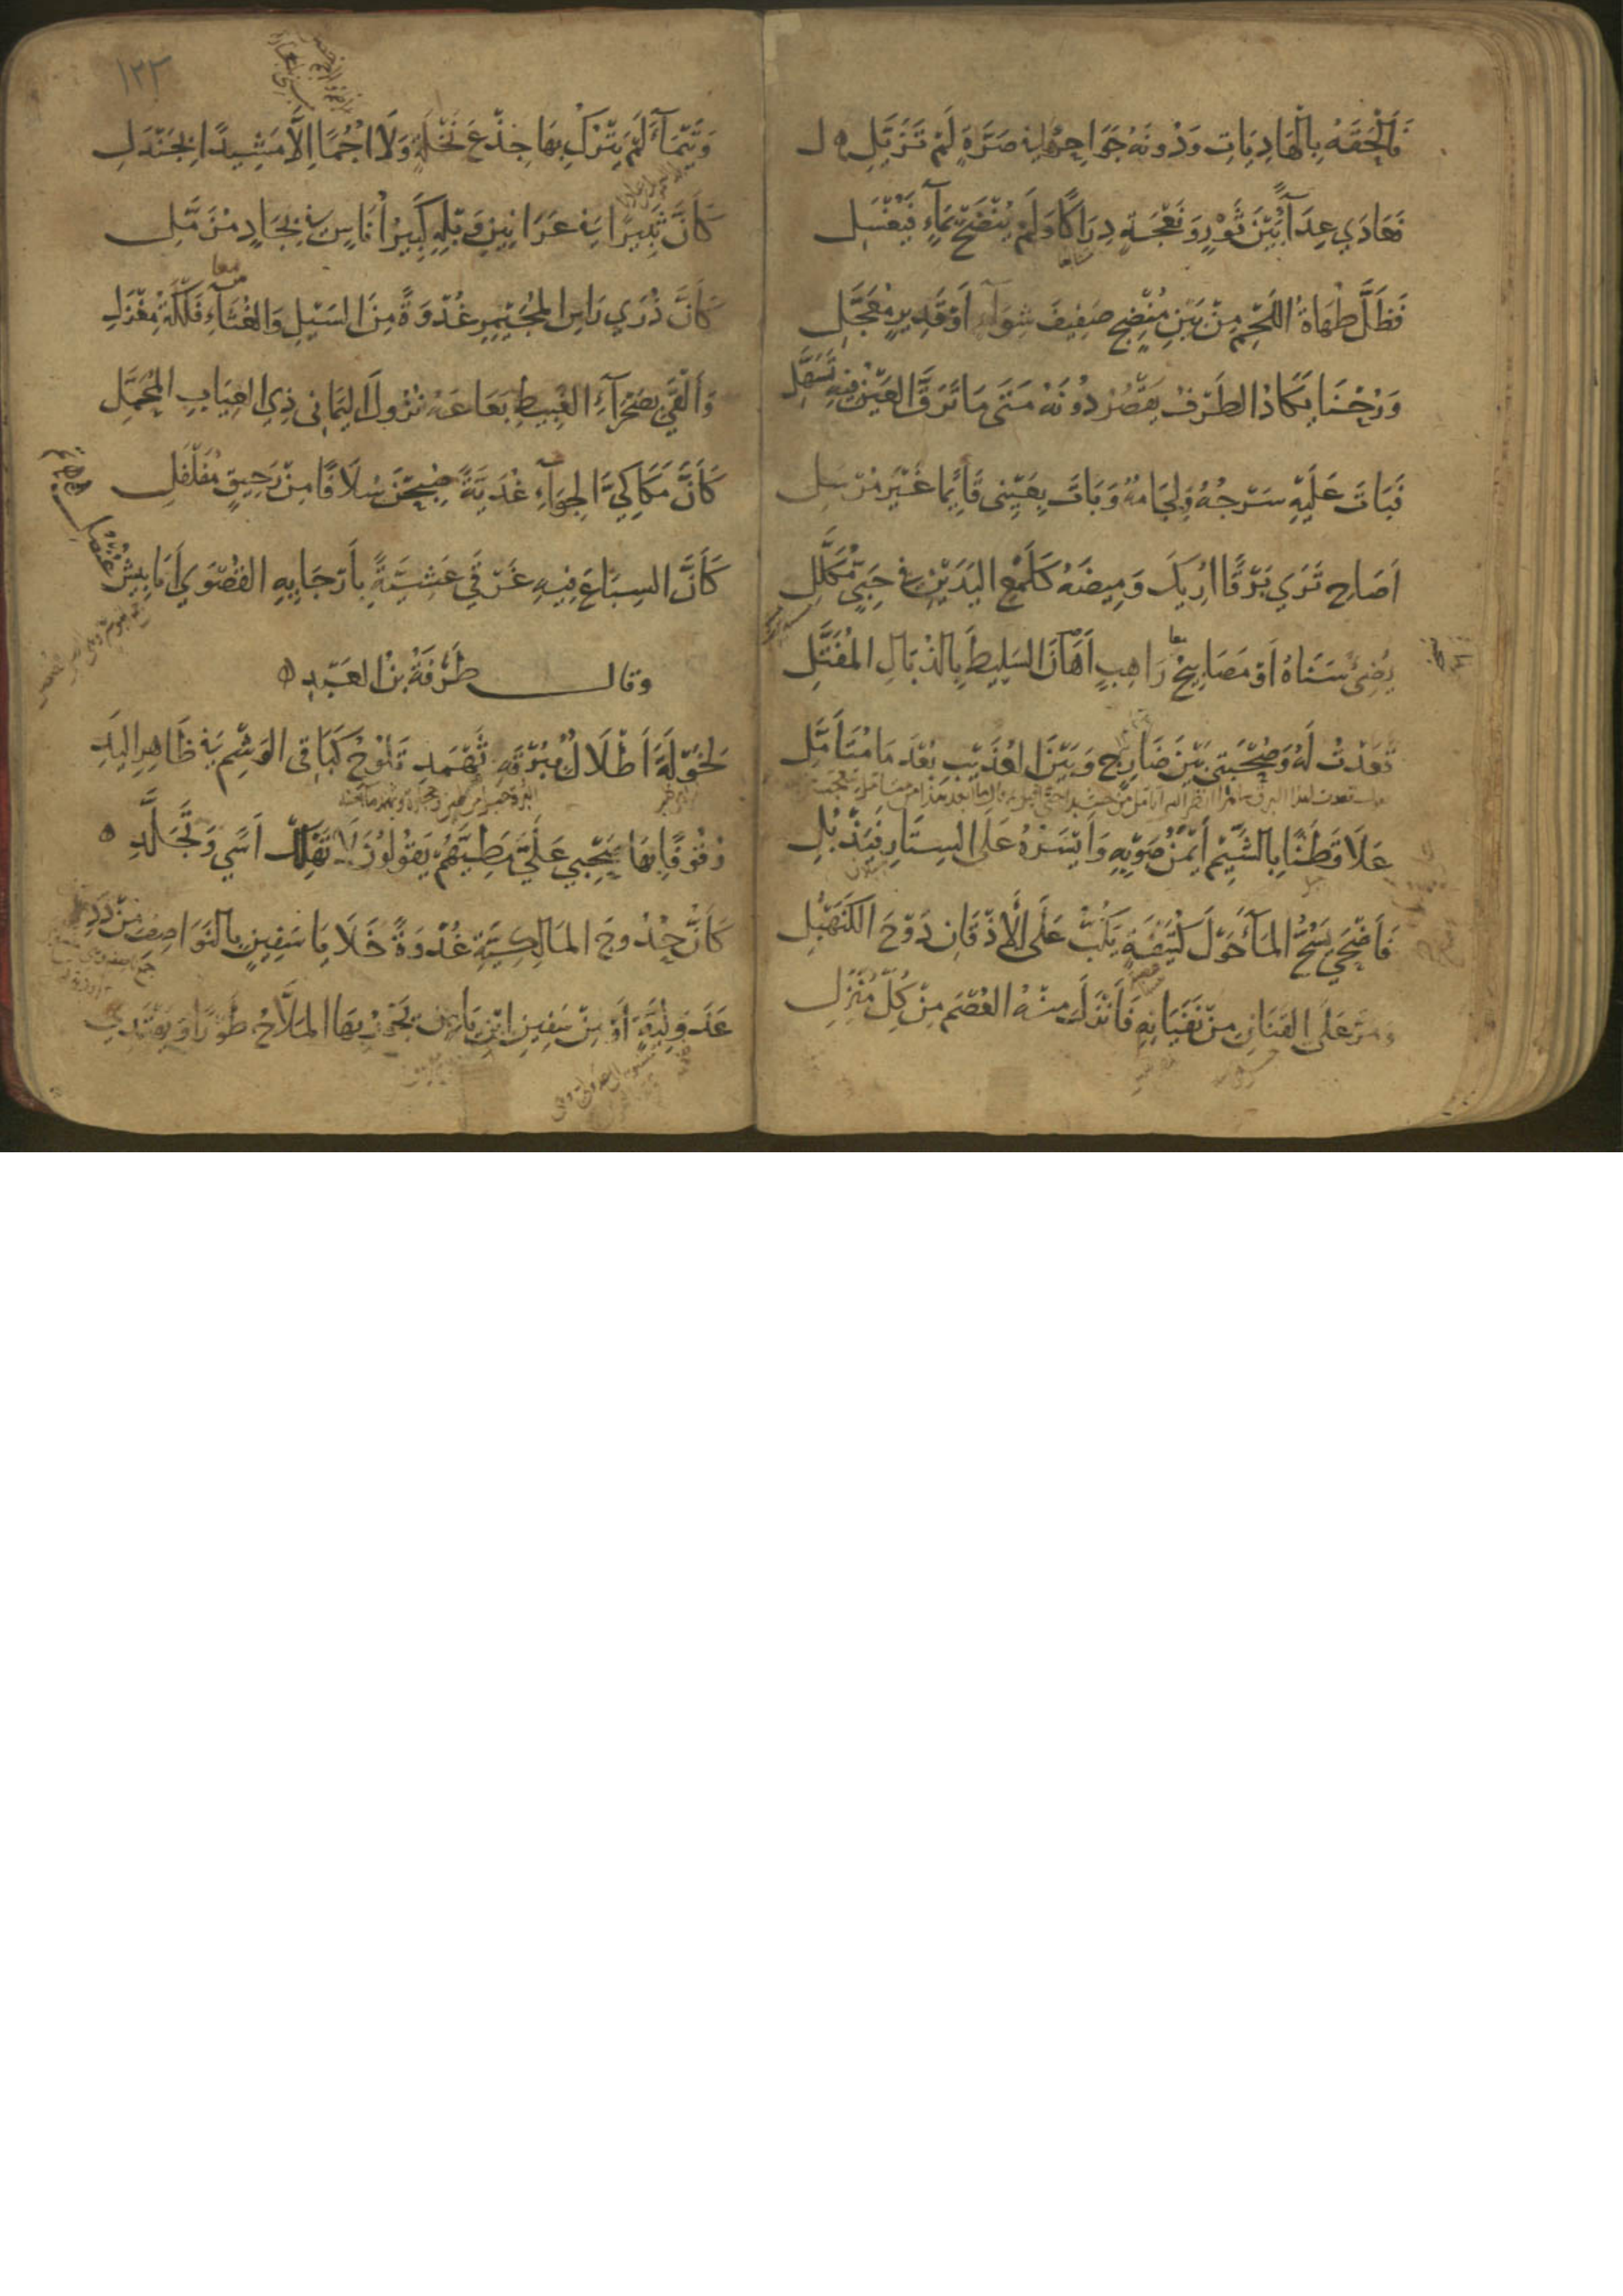 فَأَلْحَقَهُ بِالْهَادِيَاتِ وَدُونَهُ جَوَاحِرُهَا فِي صَرَّةٍ لَمْ تَزَيَّلِ
فَعَادَي عِدَآءً بَيْنَ ثَوْرٍ وَنَعْجَةٍ دِرَاكًا وَلَمْ يُنْضَحْ بِمَآءٍ فَيُغْسَلِ
فَظَلَّ طُهَاةُ اللَّحْمِ مِنْ بَيْنِ مُنْضِجٍ صَفِيفَ شِوَآءٍ أَوْ قَدِيرٍ مُعَجَّلِ
وَرُحْنَا يَكَادُ الطَّرْفُ يَقْصُرُ دُونَهُ مَتَى مَا تَرَقَّ الْعَيْنُ فِيهِ تَسَهَّلِ
فَبَاتَ عَلَيْهِ سَرْجُهُ وَلِجَامُهُ وَبَاتَ بِعَيْنِي قَائِمًا غَيْرَ مُرْسَلِ
أَصَاحِ تَرَي بَرْقًا أُرِيكَ وَمِيضَهُ كَلَمْعِ الْيَدَيْنِ فِي حَبِيٍّ مُكَلَّلِ
يُضِئُ سَنَاهُ أَوْ مَصَابِيحُ رَاهِبٍ أَهَانَ السَّلِيطَ بِالذُّبَالِ الْمُفَتَّلِ
قَعَدْتُ لَهُ وَصُحْبَتِي بَيْنَ ضَارِجٍ وَبَيْنَ الْعُذَيْبِ بُعْدَ مَا مُتَأَمَّلِ
عَلَا قَطَنًا بِالشَّيْمِ أَيْمَنُ صَوْبِهِ وَأَيْسَرُهُ عَلَى السِّتَارِ فَيَذْبُلِ
فَأَضْحَي يَسُحُّ الْمَآءَ حَوْلَ كُتَيْفَةٍ يَكُبُّ عَلَى الْأَذْقَانِ دَوْحَ الْكَنَهْبُلِ
وَمَرَّ عَلَى الْقَنَانِ مِنْ نَفَيَانِهِ فَأَنْزَلَ مِنْهُ الْعُصْمَ مِنْ كُلِّ مُنْزَلِ
١٢٣
وَتَيْمَآءَ لَمْ يَتْرُكْ بِهَا جِذْعَ نَخْلَةٍ وَلَا أُجُمًا إِلَّا مَشِيدًا بِجَنْدَلِ
كَأَنَّ ثَبِيرًا فِي عَرَانِينِ وَبْلِهِ كَبِيرُ أُنَاسٍ فِي بِجَادٍ مُزَمَّلِ
كَأَنَّ ذُرَي رَأْسِ الْمُجَيْمِرِ غُدْوَةً مِنَ السَّيْلِ وَالْغُثَآءِ فَلْكَةُ مِغْزَلِ
وَأَلْقَي بِصَحْرَآءِ الْغَبِيطِ بَعَاعَهُ نُزُولَ الْيَمَانِي ذِي الْعِيَابِ الْمُحَمَّلِ
كَأَنَّ مَكَاكِيَّ الْجِوَآءِ غُدَيَّةً صُبِحْنَ سُلَافًا مِنْ رَحِيقٍ مُفَلْفَلِ
كَأَنَّ السِّبَاعَ فِيهِ غَرْقَي عَشِيَّةً بِأَرْجَايِهِ الْقُصْوَي أَنَابِيشُ عُنْصُلِ
وقال طَرَفَةُ بْنُ الْعَبْدِ
لِخَوْلَةَ أَطْلَالٌ بِبُرْقَةِ ثَهْمَدِ تَلُوحُ كَبَاقِي الْوَشْمِ فِي ظَاهِرِ الْيَدِ
وُقُوفًا بِهَا صَحْبِي عَلَيَّ مَطِيَّهُمْ يَقُولُونَ لَا تَهْلِكْ أَسًي وَتَجَلَّدِ
كَأَنَّ حُدُوجَ الْمَالِكِيَّةِ غُدْوَةً خَلَايَا سَفِينٍ بِالنَّوَاصِفِ مِنْ دَدِ
عَدَوْلِيَّةٍ أَوْ مِنْ سَفِينِ ابْنِ يَامِنٍ يَجُورُ بِهَا الْمَلَّاحُ طَوْرًا وَيَهْتَدِي